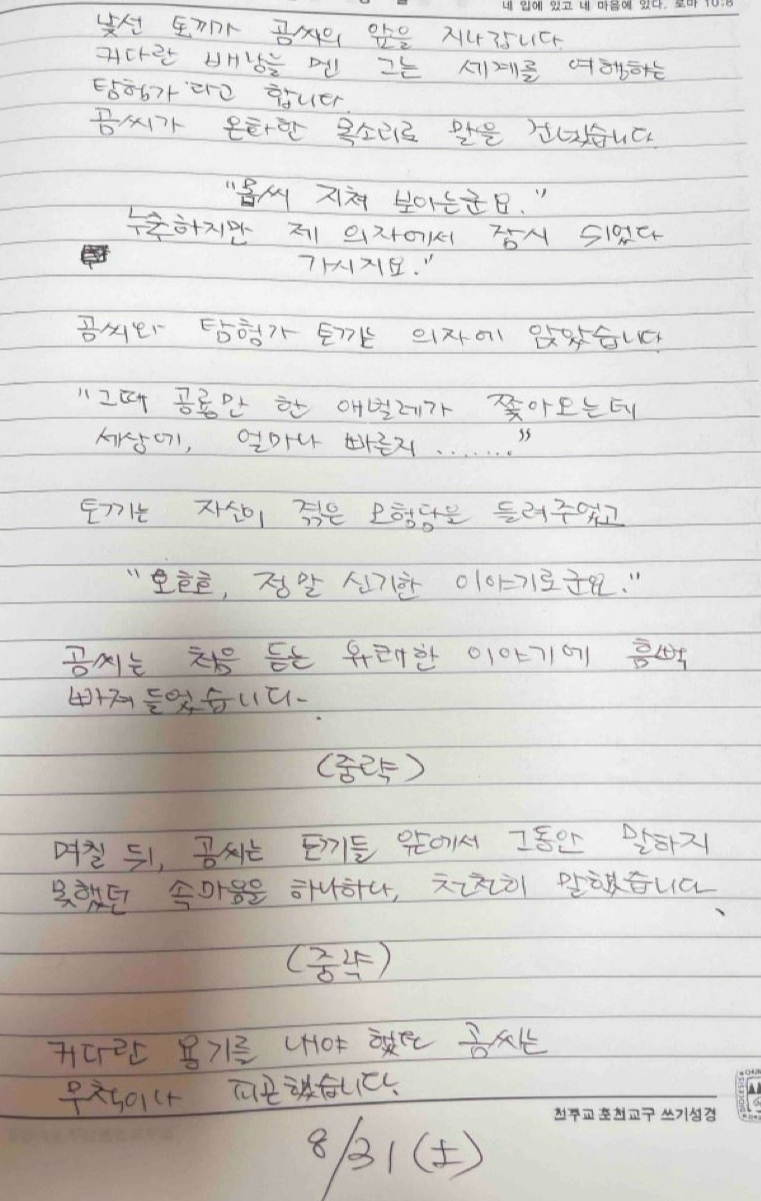 네 입에 있고 네 마음에 있다. 로마 10:8
낯선 토끼가 곰씨의 앞을 지나갑니다.
커다란 배낭을 멘 그는 세계를 여행하는
탐험가 라고 합니다.
곰씨가 온화한 목소리로 말을 건넸습니다.
"몹씨 지쳐 보이는군요."
누추하지만 제 의자에서 잠시 쉬었다
가시지요."
곰씨와 탐험가 토끼는 의자에 앉았습니다.
"그때 공룡만 한 애벌레가 쫓아오는데
세상에, 얼마나 빠른지 ......."
토끼는 자신이 겪은 모험담을 들려주었고
"오호호, 정말 신기한 이야기로군요."
곰씨는 처음 듣는 유쾌한 이야기에 흠뻑
빠져 들었습니다.
(중략)
며칠 뒤, 곰씨는 토끼들 앞에서 그동안 말하지
못했던 속마음을 하나하나, 천천히 말했습니다.
(중략)
커다란 용기를 내야 했던 곰씨는
무척이나 피곤했습니다.
천주교 춘천교구 쓰기성경
8/31 (土)